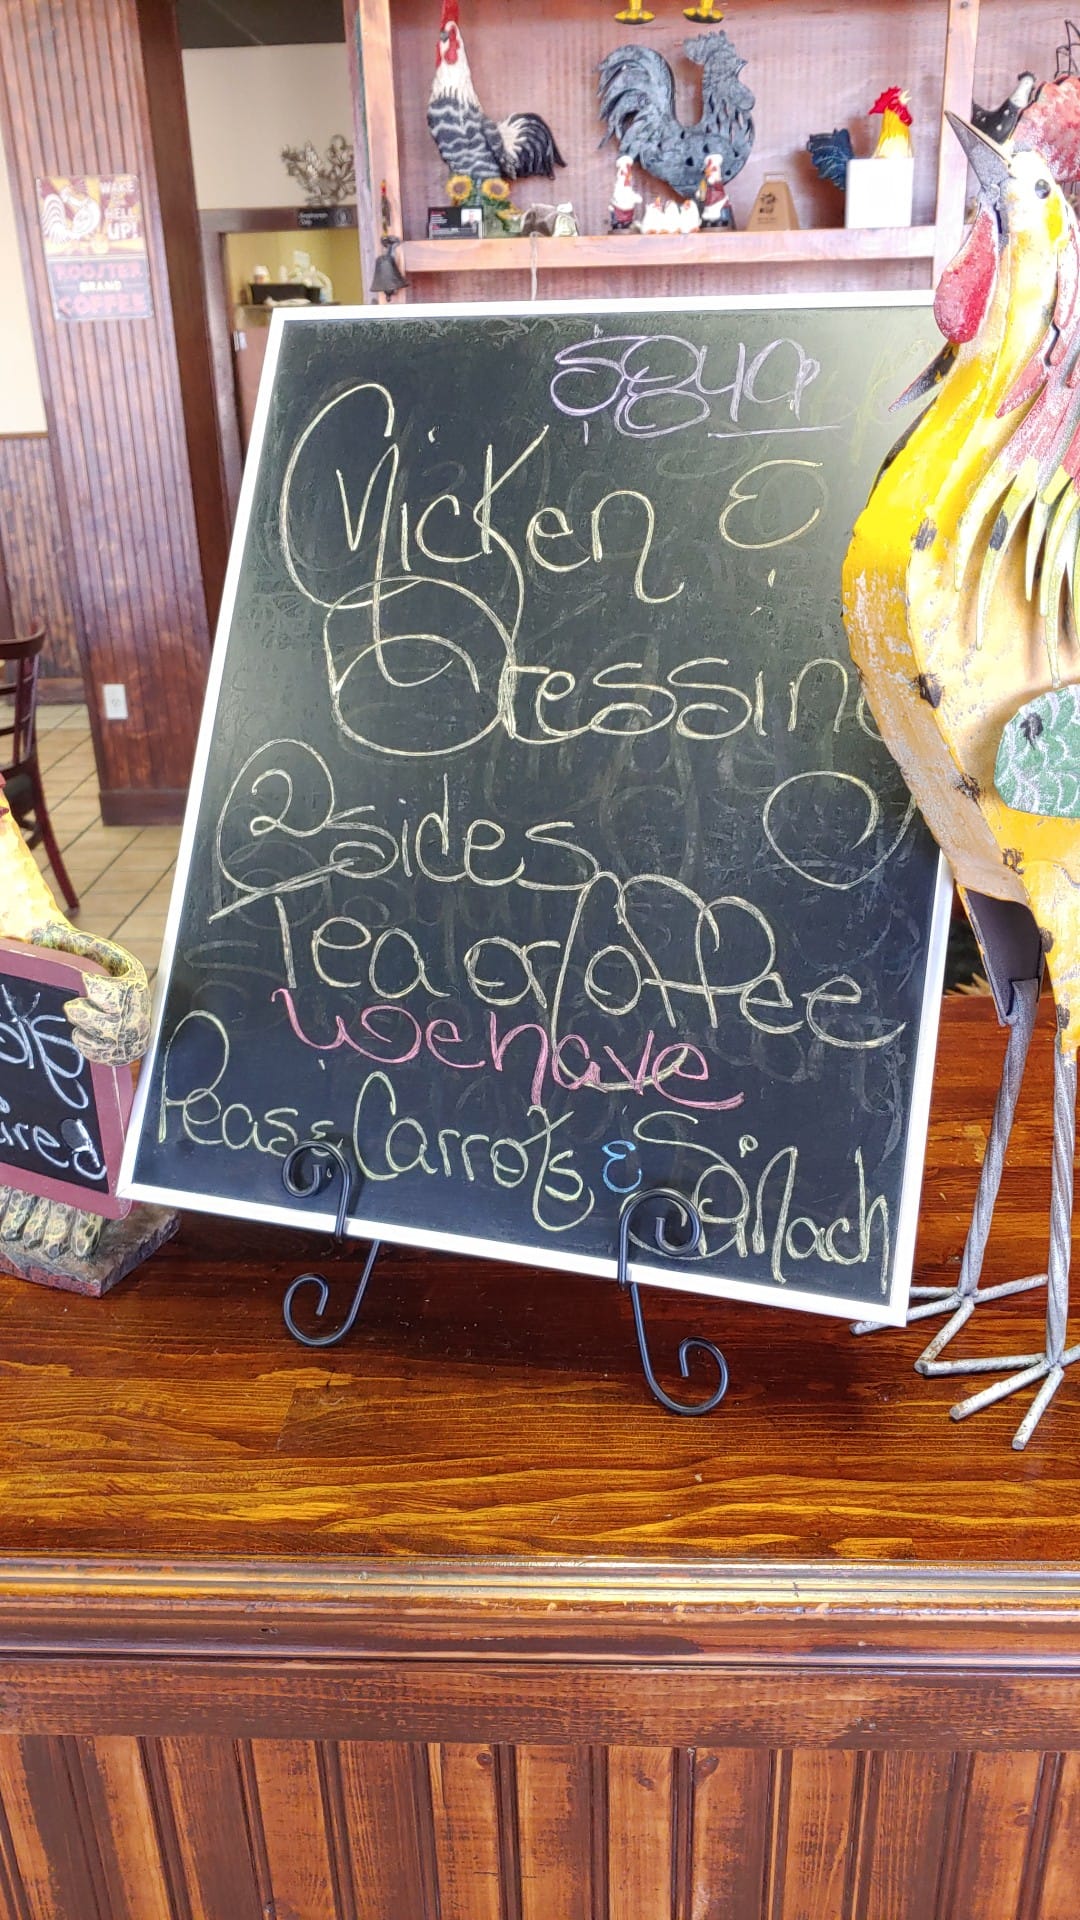 WAKE
HELL
UP!
ROOSTER
BRAND
COFFEE
Chicken &
Dressing
2 sides
Tea or Coffee
We have
Peas & Carrots & Spinach